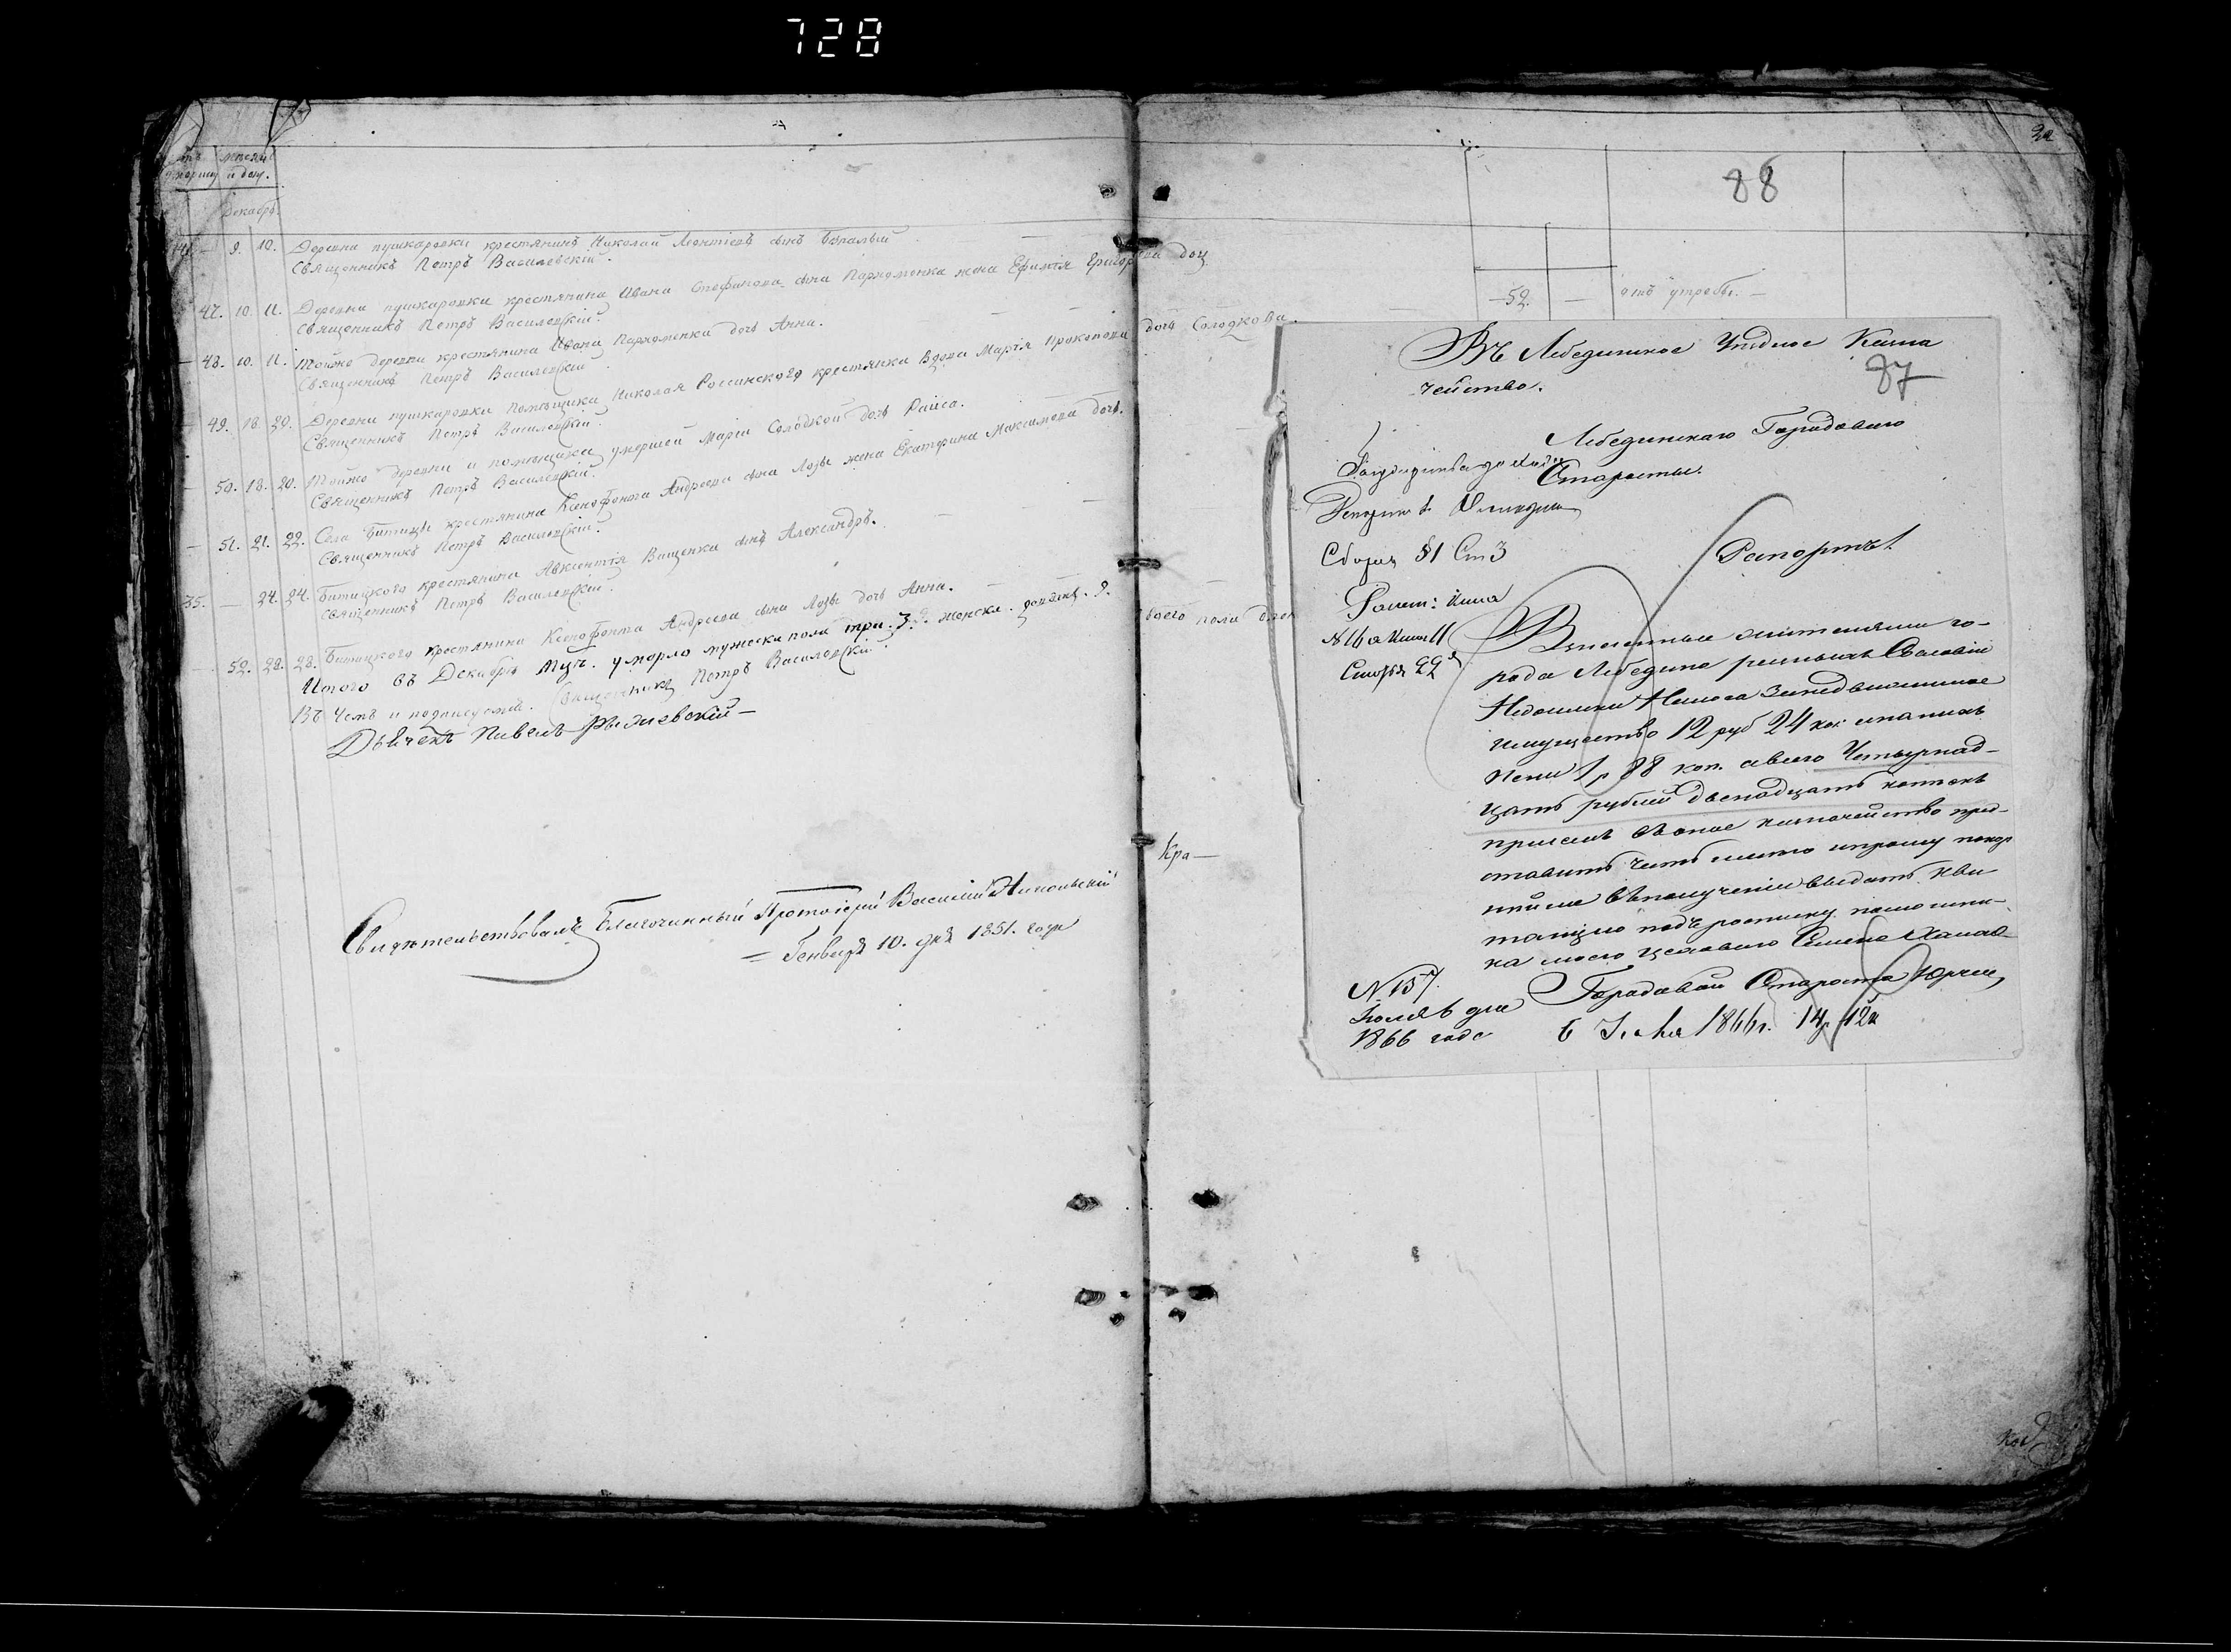 728
мѣсяцъ
и день.
Декабрь.
9. 10. Деревни пушкаровки крестянинъ Николай Леонтіевъ сынъ Безпалый
Священникъ Петръ Василевскій.
47. 10. 11. Деревни пушкаровки крестянина Ивана Стефанова сына Пархоменка жена Ефимія Григорьева доч.
Священникъ Петръ Василевскій.
48. 10. 11. Тойже деревни крестянина Ивана Пархоменка дочь Анна.
Священникъ Петръ Василевскій.
49. 18. 20. Деревни пушкаровки помѣщика Николая Россинского крестянка Вдова Марѳія Прокопова дочь Солодкова.
Священникъ Петръ Василевскій.
50. 18. 20. Тойже деревни и помѣщика умершей Маріи Солодкой дочь Раиса.
Священникъ Петръ Василевскій.
51. 21. 22. Села Битицы крестянина Ксенофонта Андреева сына Лозы жена Екатерина Максимова дочь.
Священникъ Петръ Василевскій.
35. 24. 24. Битицкого крестянина Авксентія Ващенка сынъ Александръ.
Священникъ Петръ Василевскій.
52. 28. 28. Битицкого крестянина Ксенофонта Андреева сына Лозы дочь Анна.
Итого въ Декабрѣ мцѣ. умерло мужеска пола три. 3. женска. 9.
Въ чемъ и подписуемся. Священникъ Петръ Василевскій.
Дьячекъ Павелъ
Свидѣтельствовалъ Благочинный Протоіерей Василій Никольскій
Генваря 10. дня 1851. года
88
52. отъ утробы.
Кра—
Въ Лебединское Уѣздное Казна
чейство.
87
Лебединскаго Городоваго
Старосты.
Сборъ §1 Ст 3
Рапортъ
№ 16
Статья 22
жителями го-
рода Лебедина разныхъ Сословій
Недоимки Налога за недвижимое
имущество 12 руб 24 коп и на нихъ
пени 1 р 88 коп. а всего Четырнад-
цать рублей двенадцать копѣекъ
при семъ въ оное казначейство пред-
ставить честь имѣю и прошу покор
нѣйше въ полученіи выдать кви
танцію подъ росписку помошни-
ка моего
Городовой Староста
№ 157.
6 дня
1866 года
6 1866 г. 14 р 12 к